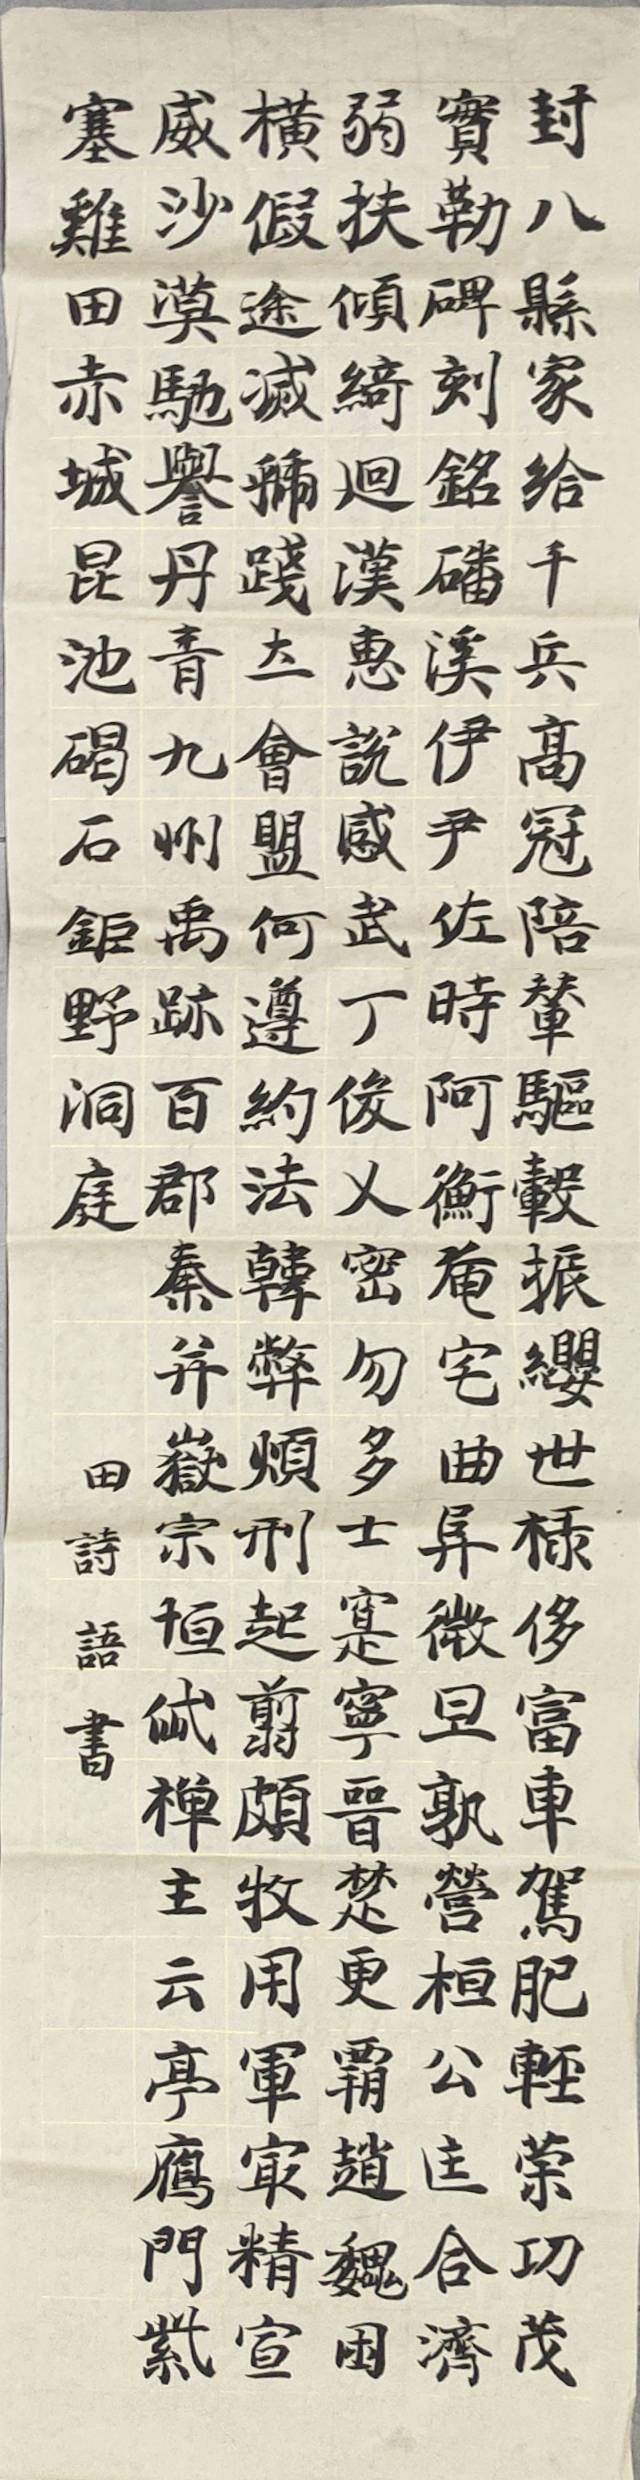 封八縣家給千兵高冠陪輦驅轂振纓世祿侈富車駕肥輕策功茂
實勒碑刻銘磻溪伊尹佐時阿衡奄宅曲阜微旦孰營桓公匡合濟
弱扶傾綺迴漢惠說感武丁俊乂密勿多士寔寧晉楚更霸趙魏困
橫假途滅虢踐土會盟何遵約法韓弊煩刑起翦頗牧用軍冣精宣
威沙漠馳譽丹青九州禹跡百郡秦并嶽宗恒岱禪主云亭鴈門紫
塞雞田赤城昆池碣石鉅野洞庭
田詩語書